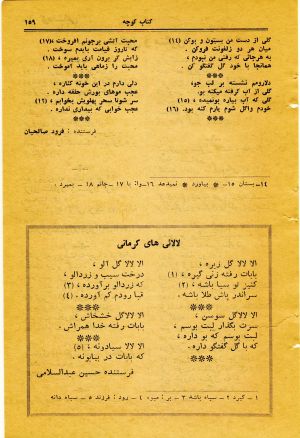 کتاب کوچه
۱۵۹
گلی از دست من بستون و بو کن (۱۴)
میان هر دو زلفونت فرو کن.
به هرجائی که رفتی من نبودم،
همانجا با خود گل گفتگو کن.
***
دلاروم نشسته بر لب جو،
گلی از آب گرفته میکنه بو.
گلی که آب بیاره بو نمیده، (۱۵)
خودم واگل شوم یارم کنه بو. (۱۶)
***
محبت آتشی برجونم افروخت (۱۷)
که تا روز قیامت بایدم سوخت.
زآتش گر برون آری بمیره، (۱۸)
محبت را زماهی باید آموخت.
***
دلی دارم در این خونه کناره،
عجب موهای بورش حلقه داره.
سر شونا سحر پهلوش بخوابم، (۱۶)
عجب خوابی که بیداری نداره.
***
فرستنده: فرود صالحیان
۱۴ـ بستان ۱۵ـ بیاورد نمیدهد ۱۶ـ وا: با ۱۷ـ جانم ۱۸ـ بمیرد
لالائی های کرمانی
الا لالا گل زیره،
بابات رفته زنی گیره، (۱)
کنیز تو سیا باشه، (۲)
سراندر پاش طلا باشه.
***
الا لالا گل سوسن،
سرت بگذار لبت بوسم،
لبت بوسم که بو داره،
که با گل گفتگو داره.
الا لالا گل آلو،
درخت سیب و زردآلو،
که زردآلو برآورده، (۳)
قبا رودم کم آورده. (۴)
***
الا لالا گل خشخاش،
بابات رفته خدا همراش.
***
الا لالا سیادونه، (۵)
که بابات در بیابونه.
فرستنده حسین عبدالسلامی
۱ـ گیرد ۲ـ سیاه باشه ۳ـ بر: میوه ۴ـ رود: فرزند ۵ـ سیاه دانه